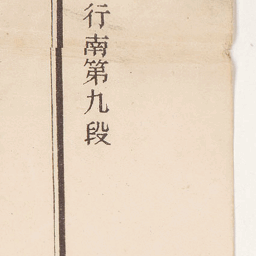 行南第九段